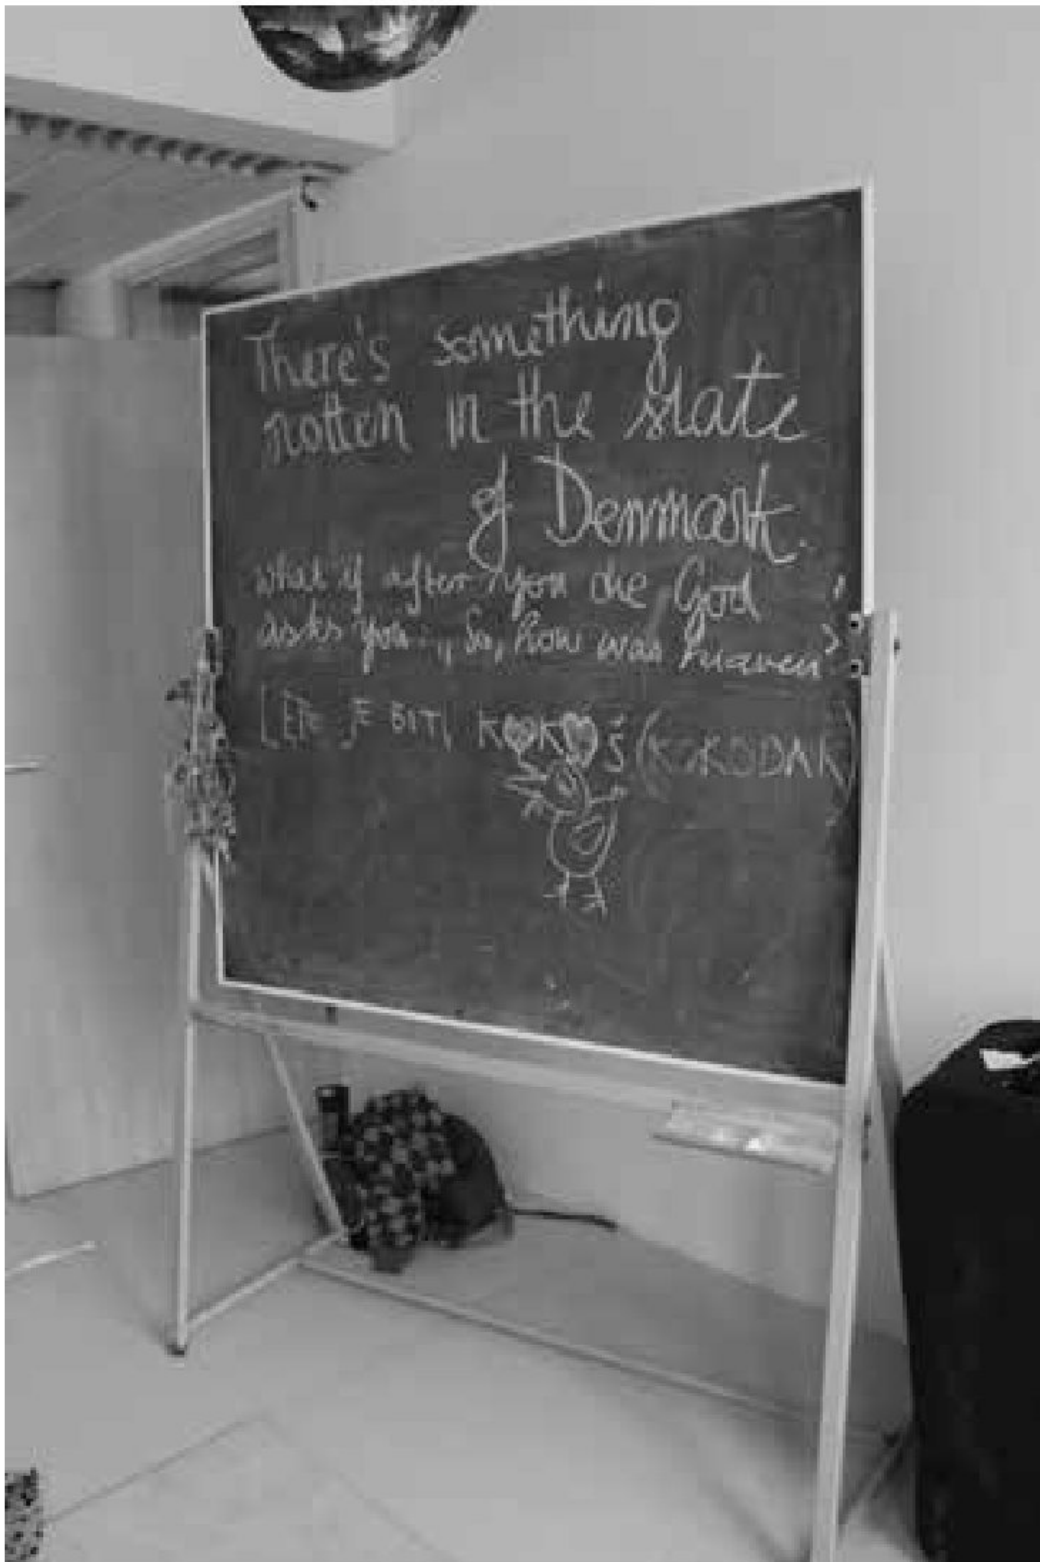 There's something
rotten in the state
of Denmark.
what if after you die God
asks you: „So, how was heaven?
LEPO JE BITI KOKOŠ (KOKODAK)